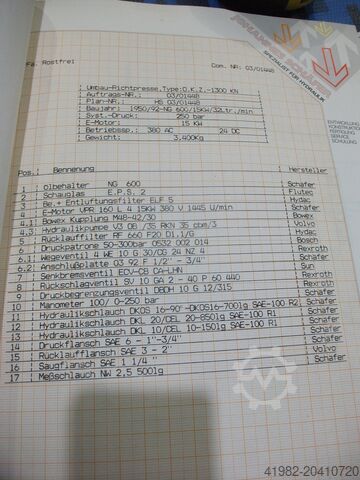 JOHANNES SCHÄFER
SPEZIALIST FÜR HYDRAULIK
ENTWICKLUNG
KONSTRUKTION
FERTIGUNG
SERVICE
SCHULUNG
Fa. Rostfrei Com. NR: 03/01448
Umbau-Richtpresse,Type:O.K.Z.-1300 KN
Auftrags-NR.: 03/01448
Plan-NR.: HS 03/01448
Baujahr: 1950/92-NG 600/15KW/32Ltr./min
Syst.-Druck: 250 bar
E-Motor: 15 KW
Betriebssp.: 380 AC 24 DC
Gewicht: 3,400Kg
Pos. Benennung Hersteller
1 Ölbehälter NG 600 Schäfer
2 Schauglas E.P.S. 2 Flutec
3 Be.+ Entluftungsfilter ELF 5 Hydac
4 E-Motor VPR 160 L 4 15KW 380 V 1445 U/min Schäfer
4.1 Bowex Kupplung M48-42/30 Bowex
4.3 Hydraulikpumpe V3 DB /35 RKN 35 cbm/3 Volvo
5 Rücklauffilter RF 660 F20 D1.1/G Hydac
6 Druckpatrone 50-300bar 0532 002 014 Bosch
6.1 Wegeventil 4 WE 10 G 30/CG 24 NZ 4 Rexroth
6.2 Anschlußplatte 03 92 P 1/2" - 3/4" Schäfer
7 Senkbremsventil ECV-CB CA-LHN Sun
8 Rückschlagventil SV 10 GA 2 - 40 P 60 440 Rexroth
9 Druckbegrenzungsventil DBDH 10 G 12/315 Rexroth
10 Manometer 100/ 0-250 bar Schäfer
11 Hydraulikschlauch DKOS 16-90°-DKOS16-700lg SAE-100 R2 Schäfer
12 Hydraulikschlauch DKL 20/CEL 20-850lg SAE-100 R1 Schäfer
13 Hydraulikschlauch DKL 10/CEL 10-150lg SAE-100 R1 Schäfer
14 Druckflansch SAE 6 - 1"-3/4" Schäfer
15 Rücklaufflansch SAE 3 - 2" Schäfer
16 Saugflansch SAE 1 1/4 " Volvo
17 Meßschlauch NW 2,5 500lg Schäfer
41982-20410720